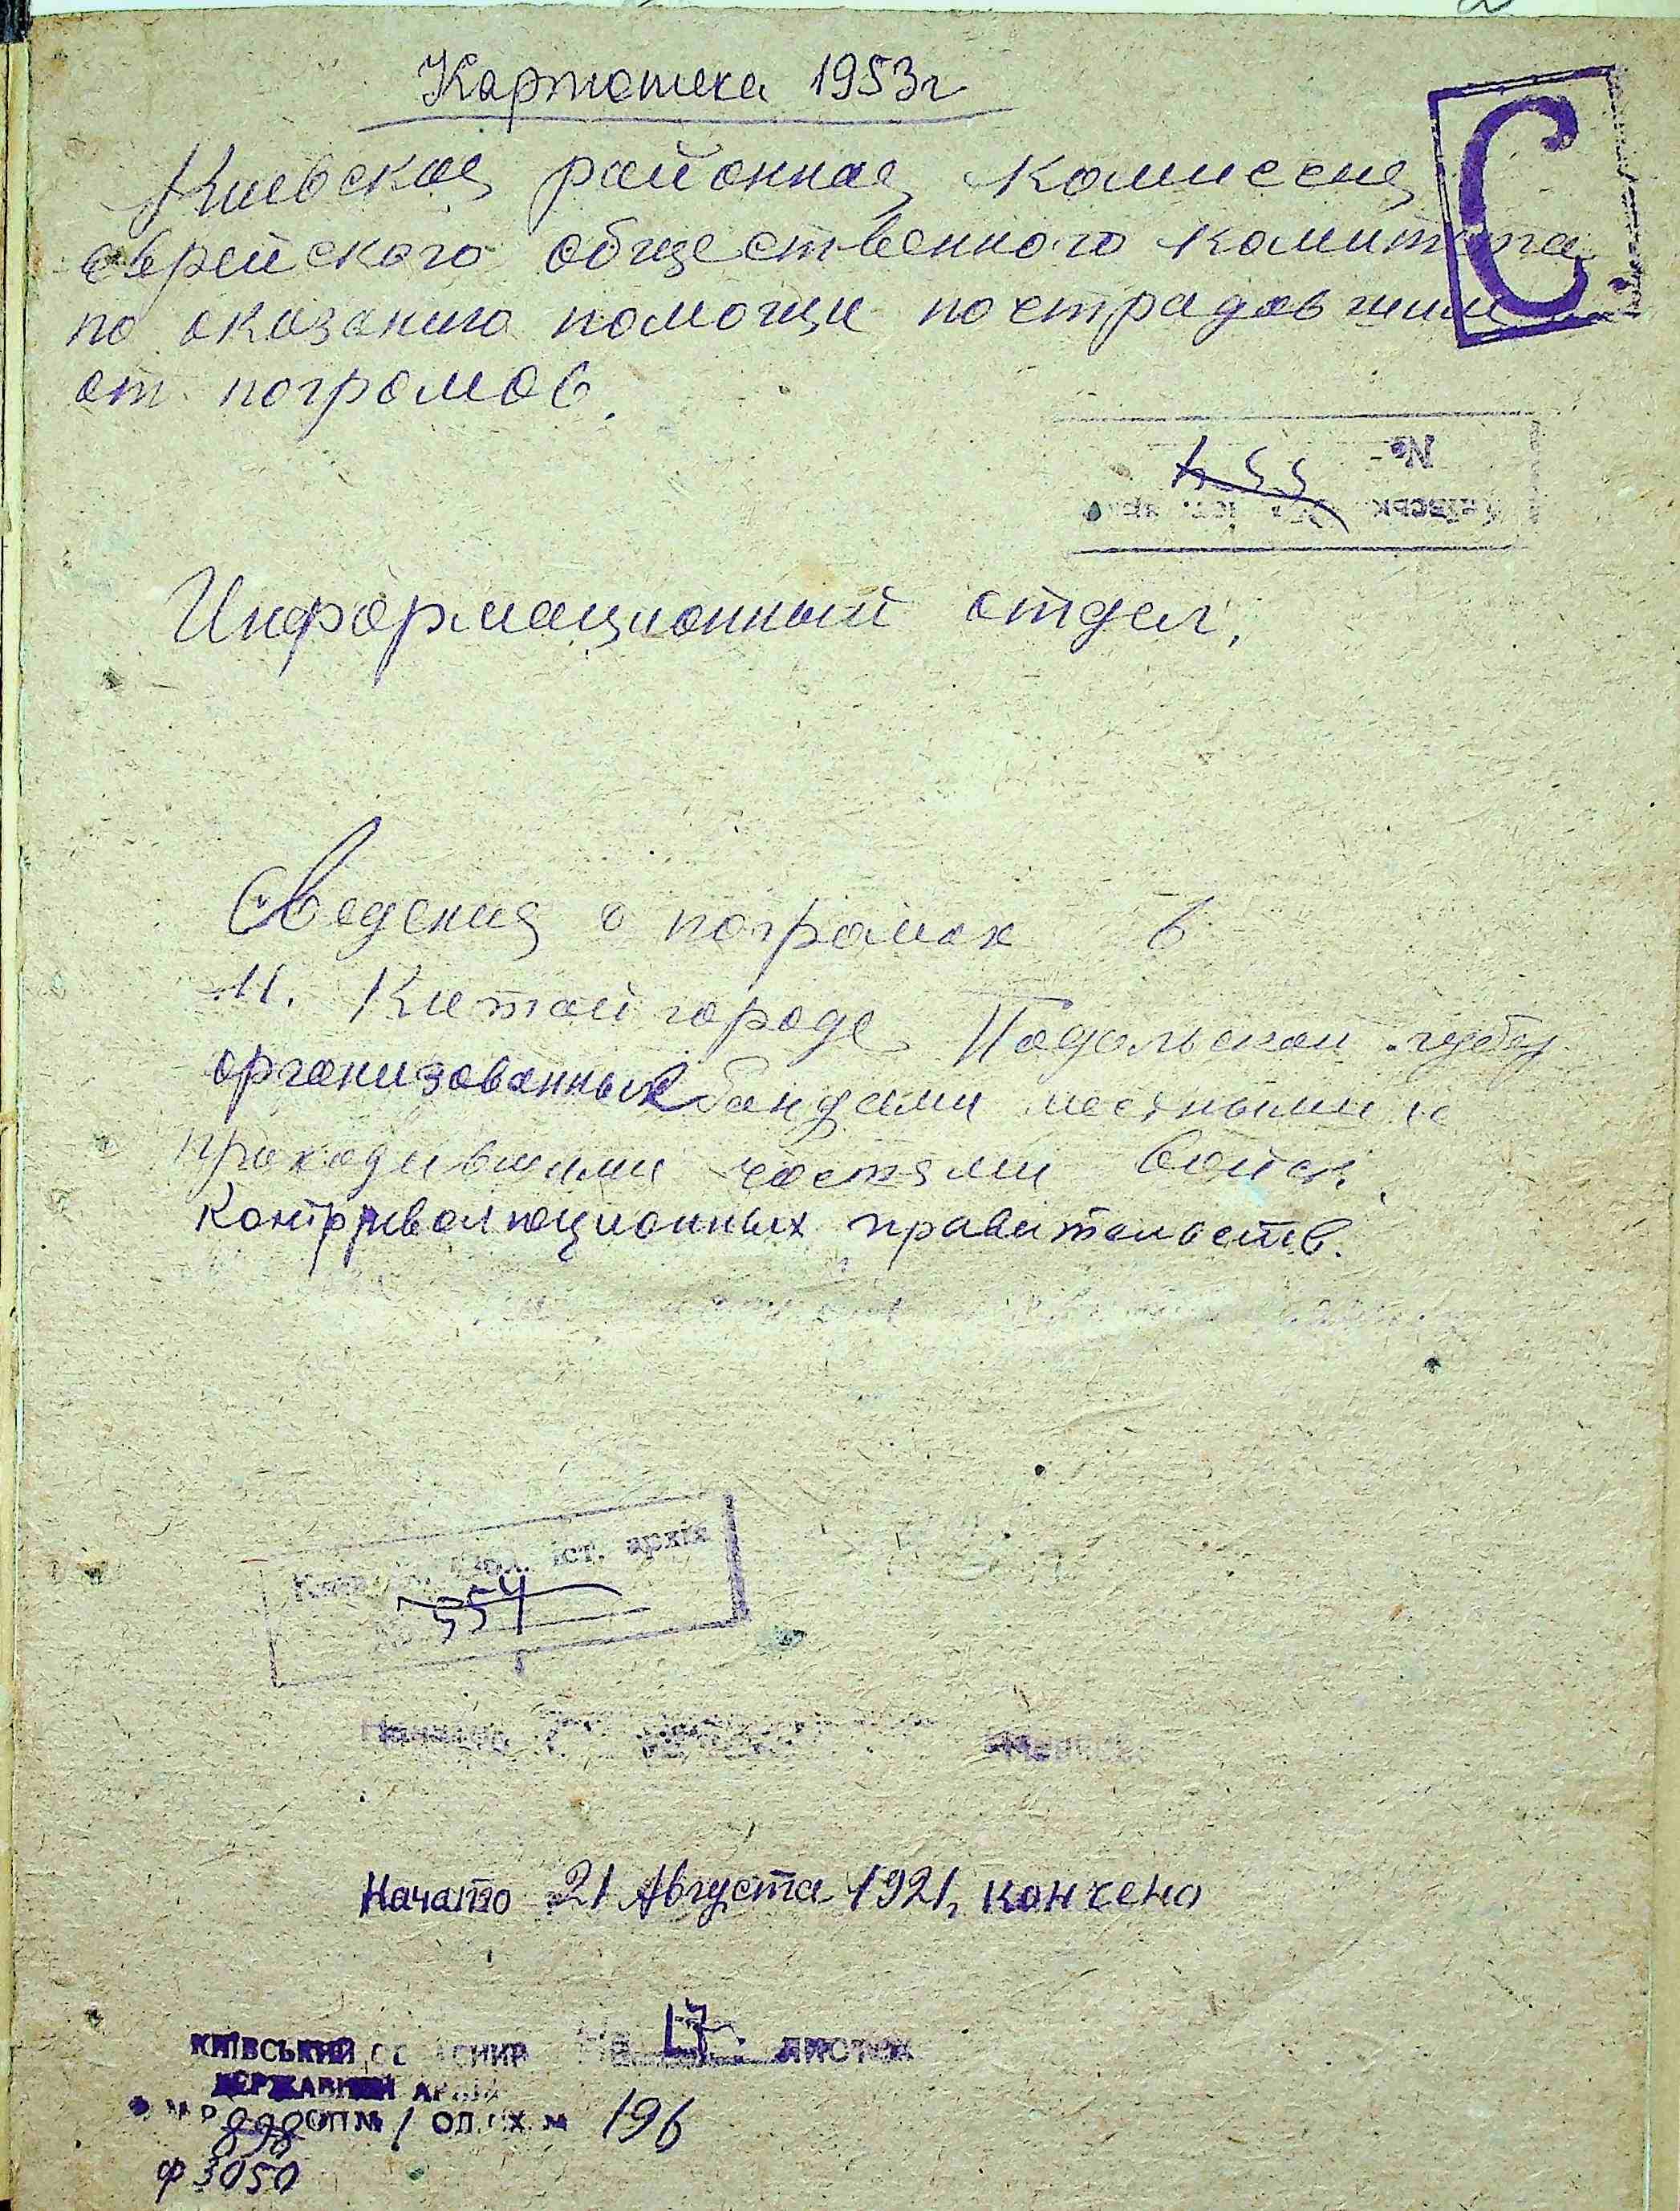 Картотека 1953г
С
Киевская районная комиссия
еврейского общественного комитета
по оказанию помощи пострадавшим
от погромов.
№
554
Информационный отдел,
Сведения о погромах в
м. Китай городе Подольской губ.
организованных бандами местными и
проходившими частями войск
контрриволюционных правительств.
іст. архів
554
Начато 21 Августа 1921, кончено
КИЇВСЬКИЙ
На 17 листах
ДЕРЖАВНИЙ АРХІВ
Р 898 ОП № 1 ОД. ЗХ. № 196
ф 3050